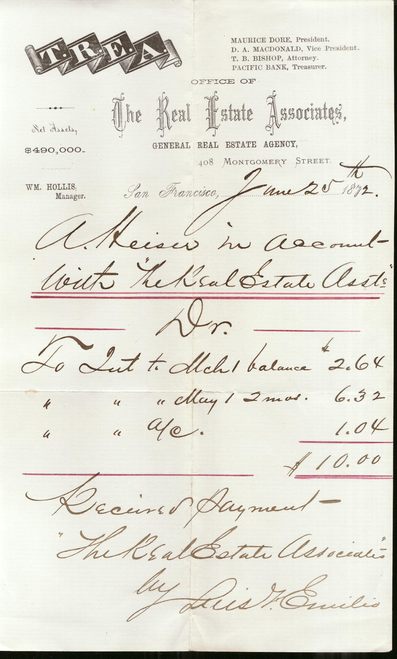 T.R.E.A.
MAURICE DORE, President.
D. A. MACDONALD, Vice President.
T. B. BISHOP, Attorney.
PACIFIC BANK, Treasurer.
OFFICE OF
The Real Estate Associates,
Net Assets,
$490,000.
GENERAL REAL ESTATE AGENCY,
408 MONTGOMERY STREET.
WM. HOLLIS,
Manager.
San Francisco, June 25th 1872.
A. Heiser in account
With "The Real Estate Assts"
Dr.
To Int to Mch 1 balance $ 2.64
" " " May 1 2 mos. 6.32
" " a/c. 1.04
$ 10.00
Received payment
"The Real Estate Associates"
by Luis F. Emilio